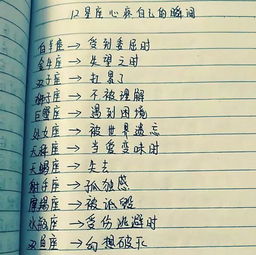 12星座心疼自己的瞬间
白羊座→受到委屈时
金牛座→失望之时
双子座→打累了
狮子座→不被理解
巨蟹座→遇到困境
处女座→被世界遗忘
天秤座→当爱变味时
天蝎座→失去
射手座→孤独感
摩羯座→被诋毁
水瓶座→受伤逃避时
双鱼座→幻想破灭